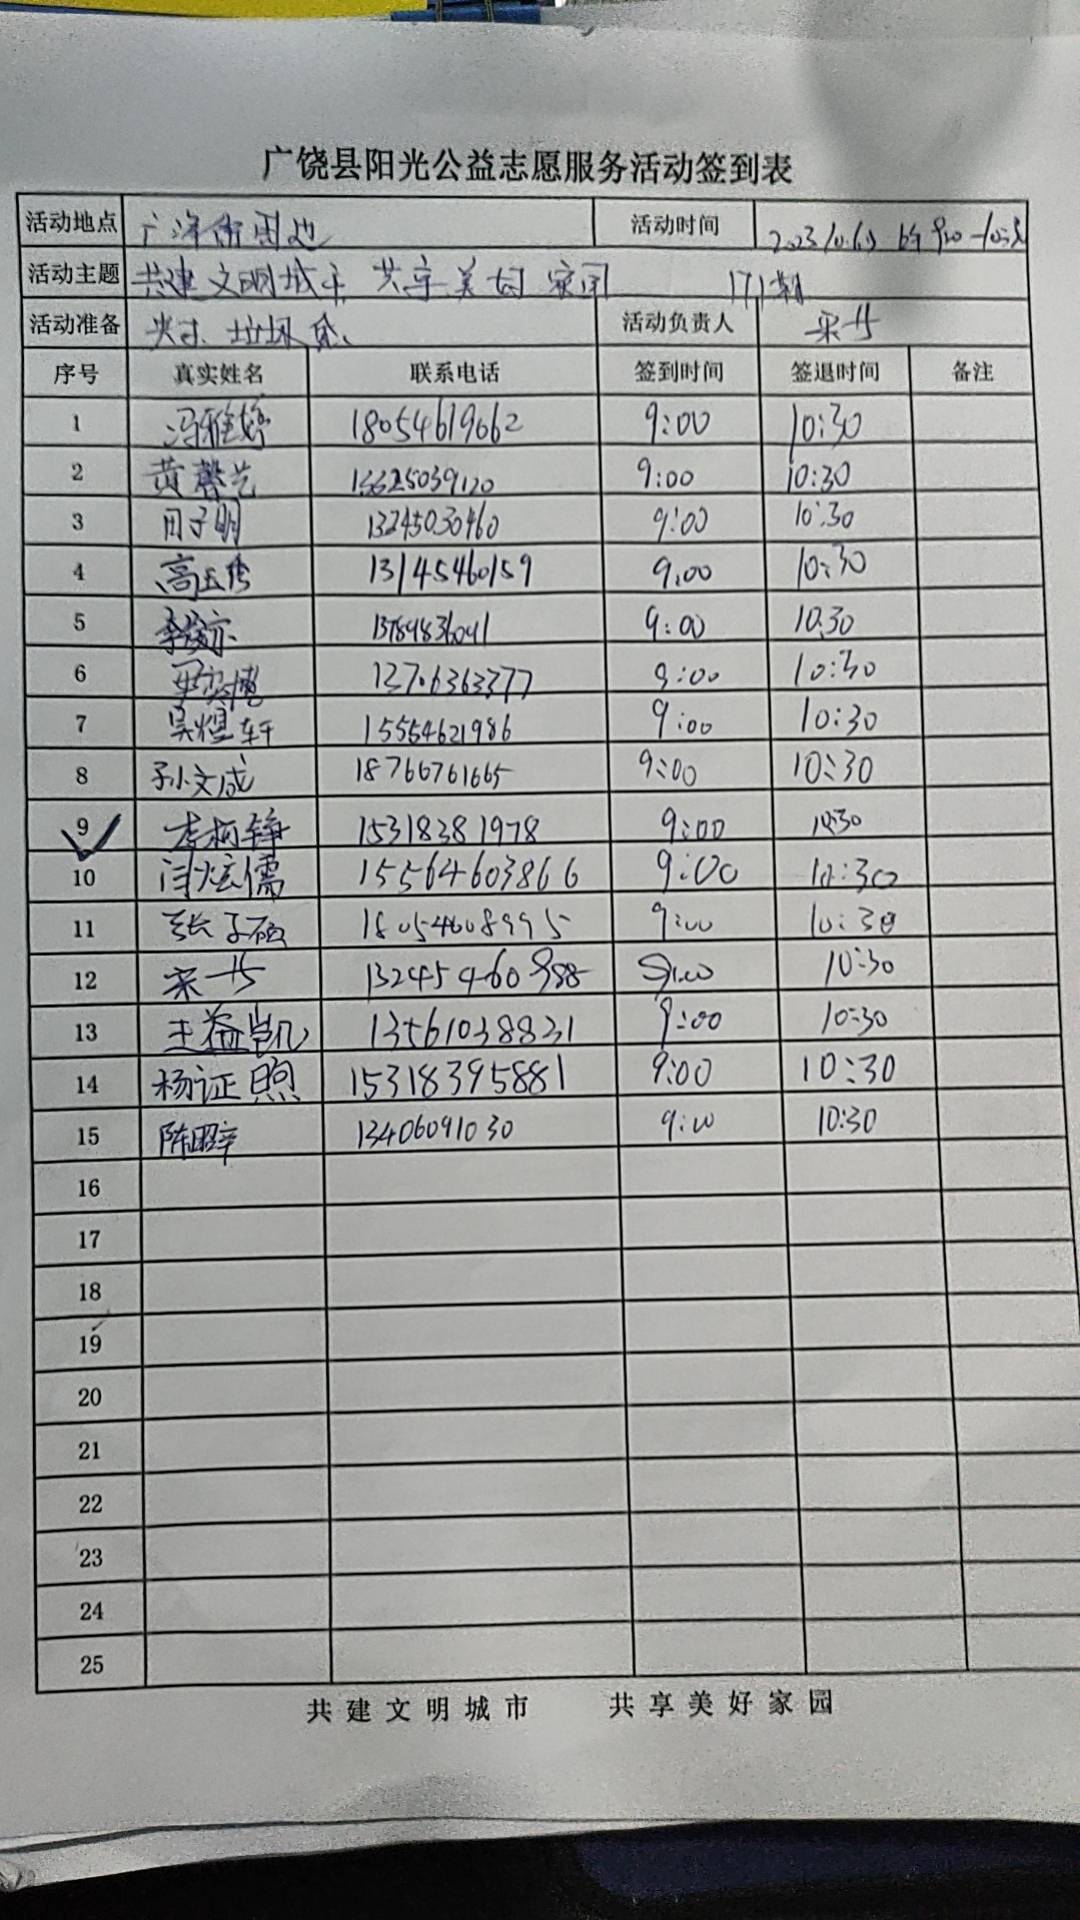 广饶县阳光公益志愿服务活动签到表
活动地点 活动时间
活动主题 共建文明城市 共享美好家园 171期
活动准备 夹子、垃圾袋、 活动负责人
序号 真实姓名 联系电话 签到时间 签退时间 备注
1 冯雅婷 18054619062 9:00 10:30
2 黄馨艺 9:00 10:30
3 田子明 13245030460 9:00 10:30
4 13145460159 9:00 10:30
5 9:00 10:30
6 13706363377 9:00 10:30
7 吴煜轩 15554621986 9:00 10:30
8 孙文成 18766761665 9:00 10:30
9 李柯锋 15318381978 9:00 10:30
10 闫炫儒 15564603866 9:00 10:30
11 张子硕 18054608995 9:00 10:30
12 13245460988 9:00 10:30
13 王益凯 13561038831 9:00 10:30
14 杨证照 15318395881 9:00 10:30
15 13406091030 9:00 10:30
16
17
18
19
20
21
22
23
24
25
共建文明城市 共享美好家园